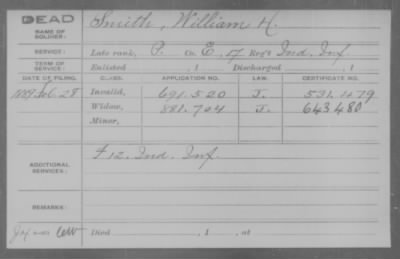 DEAD
NAME OF SOLDIER: Smith, William H.
SERVICE: Late rank, P. Co. E, 17 Reg't Ind. Inf
TERM OF SERVICE: Enlisted , 1 Discharged , 1
DATE OF FILING. CLASS. APPLICATION NO. LAW. CERTIFICATE NO.
28 Invalid, 691.520 J. 531.479
Widow, 881.704 J. 643480
Minor,
ADDITIONAL SERVICES: F 12. Ind. Inf.
REMARKS:
Died , 1 , at